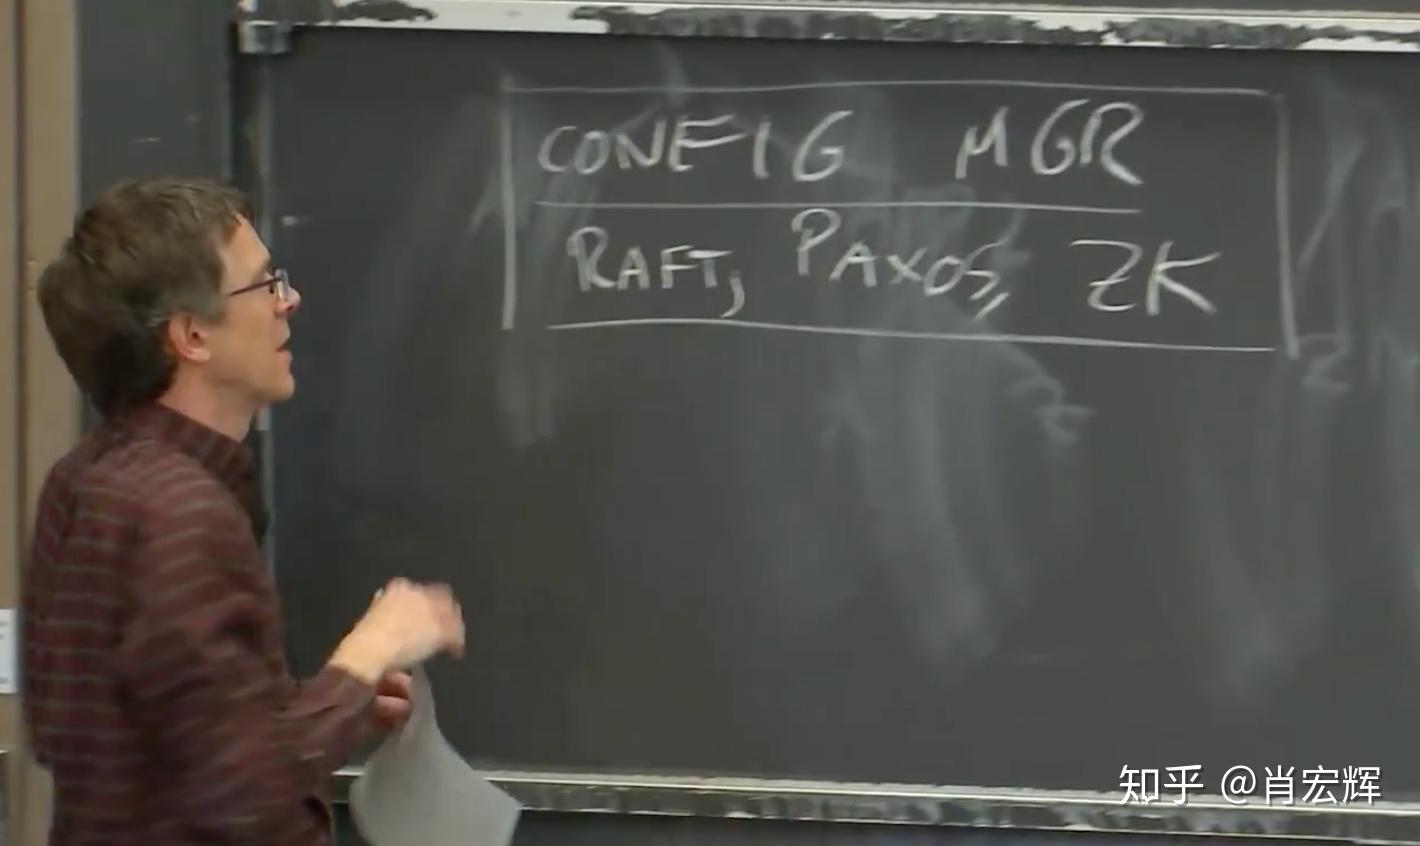 CONFIG MGR
RAFT, PAXOS, ZK
知乎 @肖宏辉